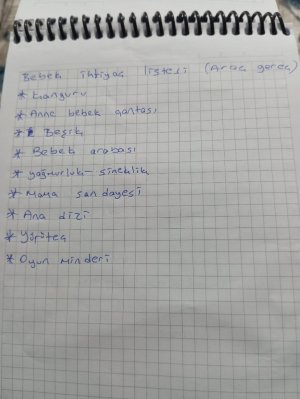 Bebek ihtiyaç listesi (Araç gereç)
* Kanguru
* Anne bebek çantası
* Beşik
* Bebek arabası
* Yağmurluk - sineklik
* Mama sandayesi
* Ana dizi
* Yürüteç
* Oyun minderi